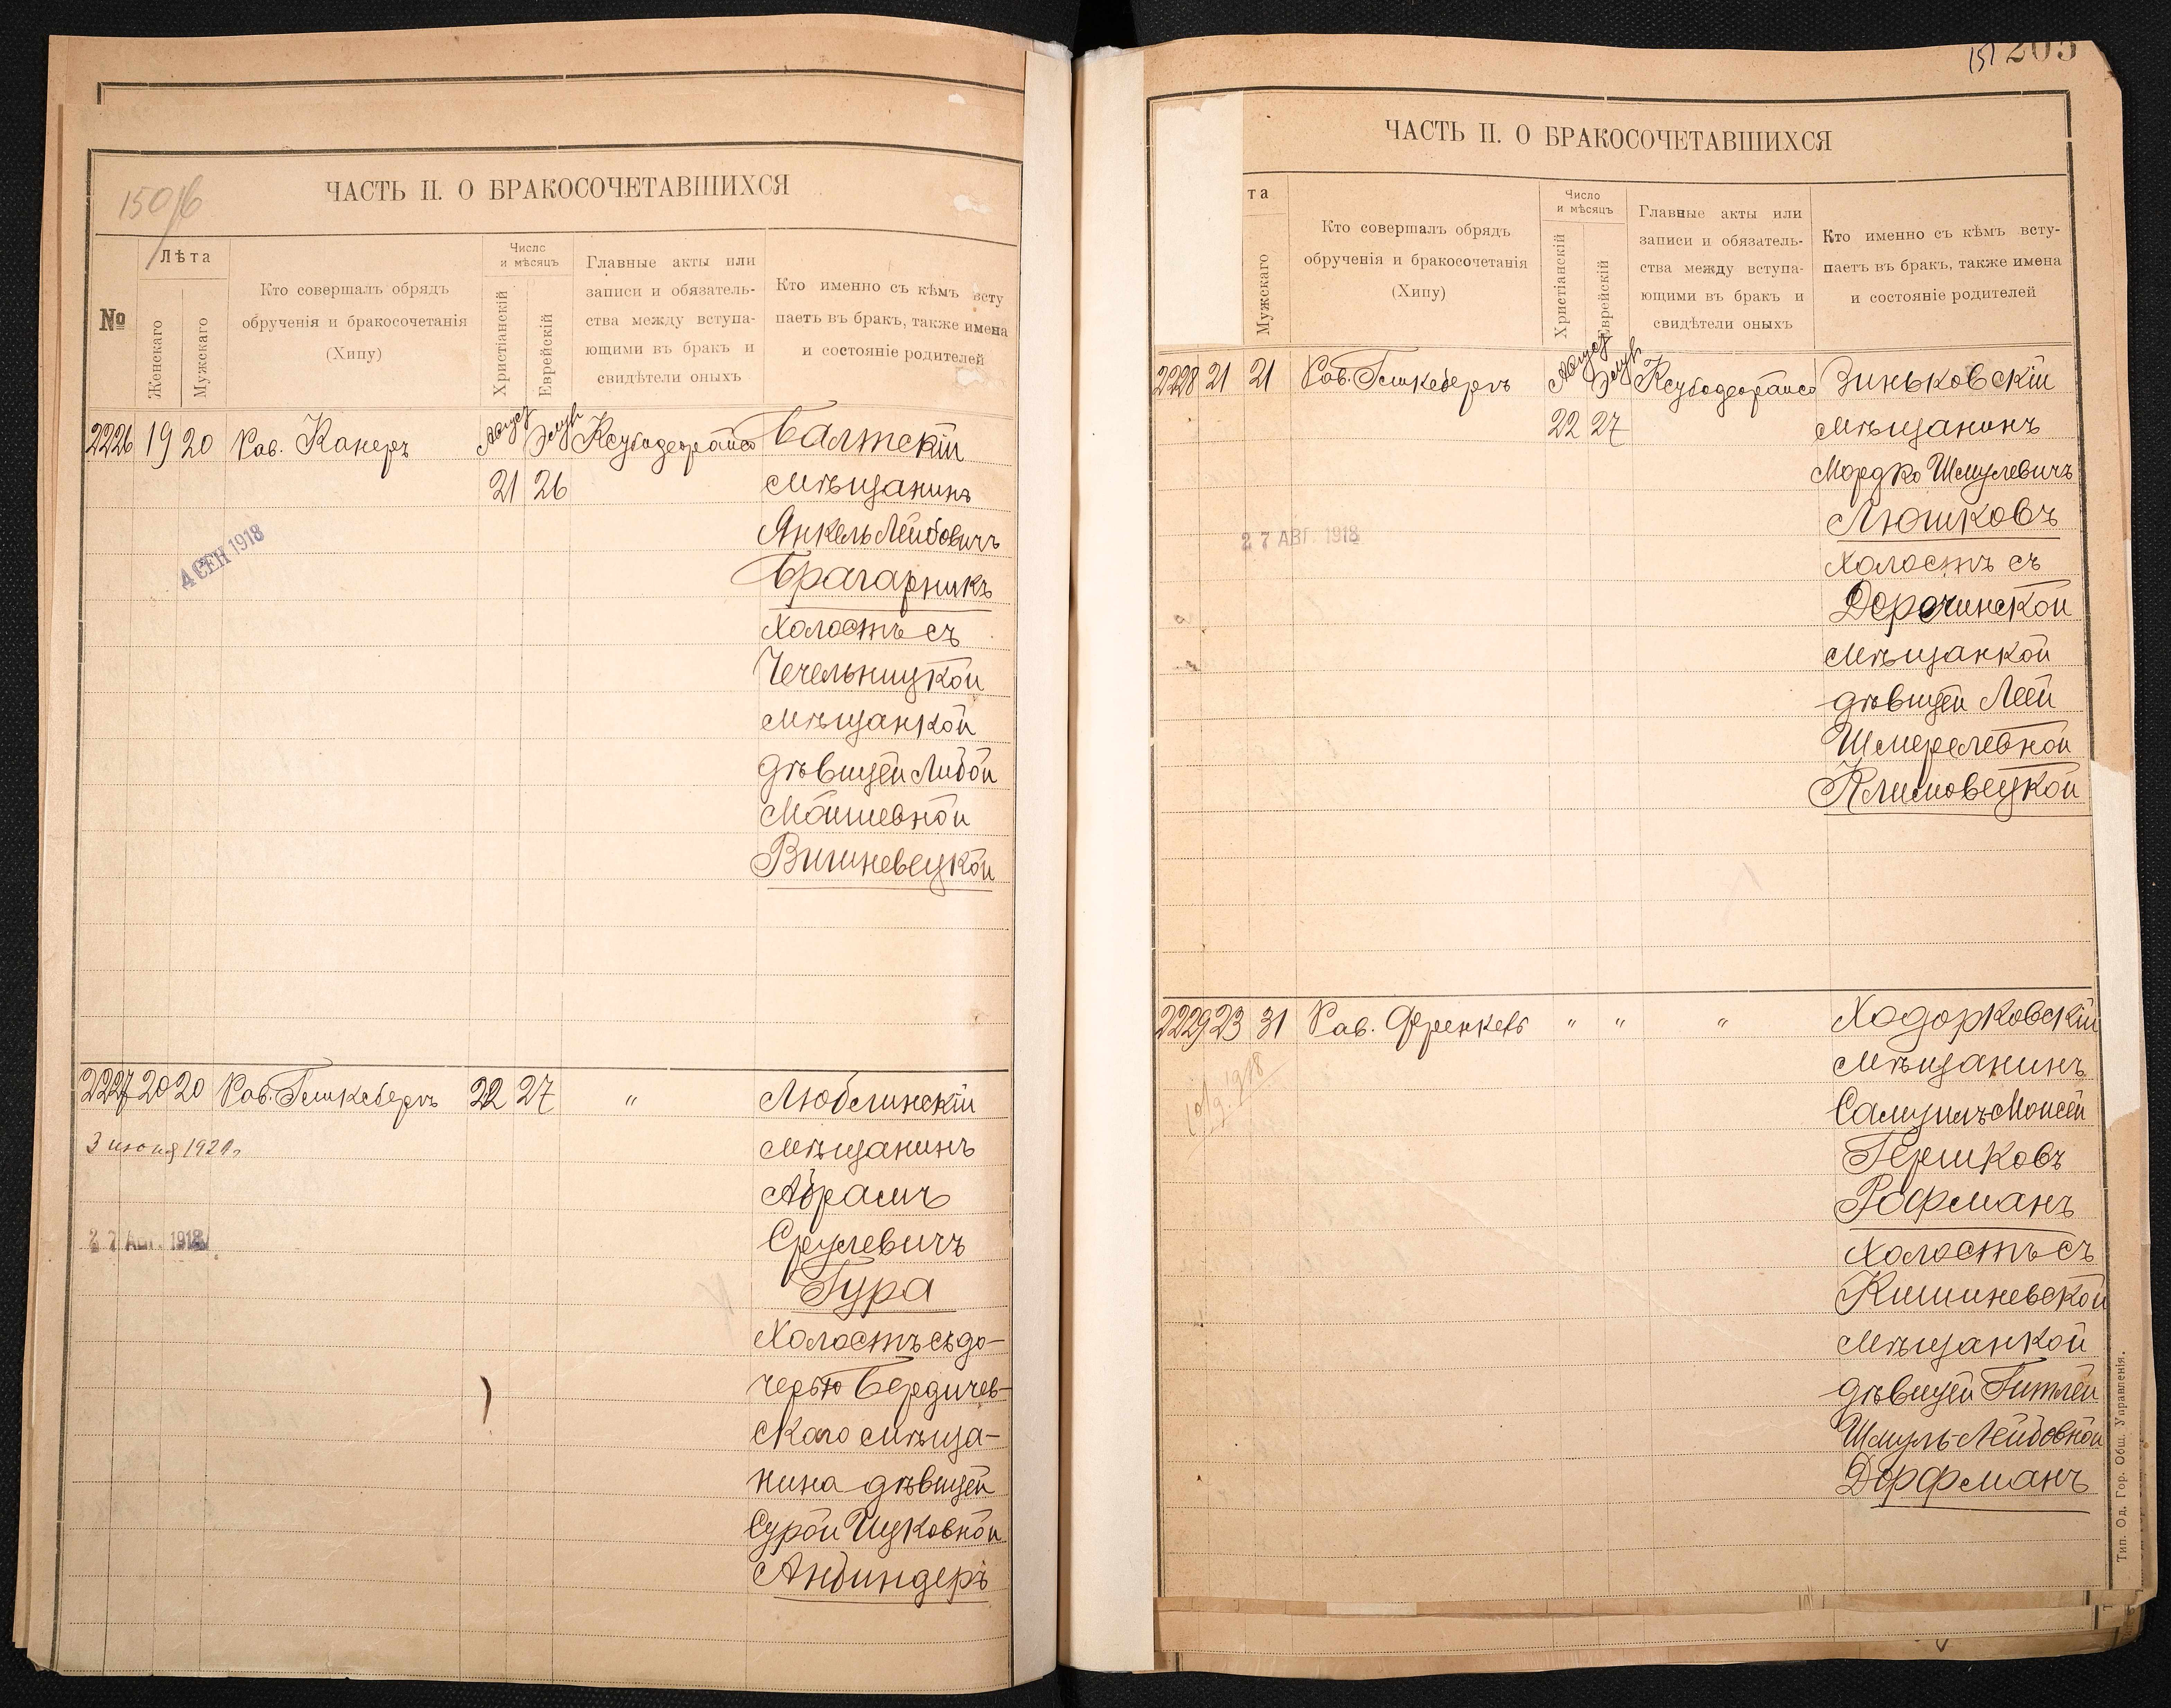 150/б
ЧАСТЬ II. О БРАКОСОЧЕТАВШИХСЯ
№
Лѣта
Женскаго
Мужскаго
Кто совершалъ обрядъ
обрученія и бракосочетанія
(Хипу)
Число
и мѣсяцъ
Христіанскій
Еврейскій
Главные акты или
записи и обязатель-
ства между вступа-
ющими въ бракъ и
свидѣтели оныхъ
Кто именно съ кѣмъ всту
паетъ въ бракъ, также имена
и состояніе родителей
2226 19 20 Рав. Канеръ Август Элуль Балтскій
21 26 мѣщанинъ
Янкель Лейбовичъ
Брагарникъ
холостъ съ
Чечельницкой
мѣщанкой
дѣвицей Либой
Мошиевной
Вишневецкой
4 СЕН 1918
2227 20 20 Рав. Гешкеберъ 22 27 " Люблинскій
3 июня 1921г.
мѣщанинъ
Абрамъ
Срулевичъ
27 АВГ. 1918
Гура
холостъ съ до-
черью Бердичев-
скаго мѣща-
нина дѣвицей
Сурой Ицковной
Анбиндеръ
151 205
ЧАСТЬ II. О БРАКОСОЧЕТАВШИХСЯ
та
Мужскаго
Кто совершалъ обрядъ
обрученія и бракосочетанія
(Хипу)
Число
и мѣсяцъ
Христіанскій
Еврейскій
Главные акты или
записи и обязатель-
ства между вступа-
ющими въ бракъ и
свидѣтели оныхъ
Кто именно съ кѣмъ всту-
паетъ въ бракъ, также имена
и состояніе родителей
2228 21 21 Рав. Гешкеберъ Август Элуль Зиньковскій
22 27 мѣщанинъ
Мордко Шмулевичъ
Люшковъ
27 АВГ. 1918
холостъ съ
Дорочинской
мѣщанкой
дѣвицей Леей
Шмерелевной
Климовецкой
2229 23 31 Рав. Френкель " " " Ходорковскій
мѣщанинъ
Самуилъ Моисей
Гершковъ
Рофманъ
холостъ съ
Кишиневской
мѣщанкой
дѣвицей Гитлей
Шмуль-Лейбовной
Дорфманъ
Тип. Од. Гор. Общ. Управленія.